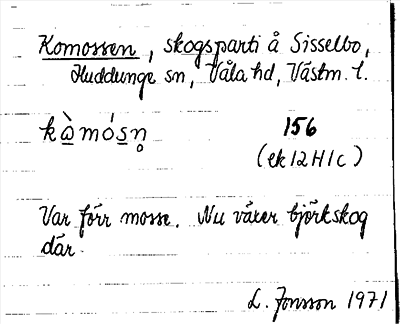 Komossen, skogsparti å Sisselbo,
Huddunge sn, Våla hd, Västm. l.
kà̱mós̱n̥ 156
(ek 12 H 1 c)
Var förr mosse. Nu växer björkskog
där.
L. Jonsson 1971